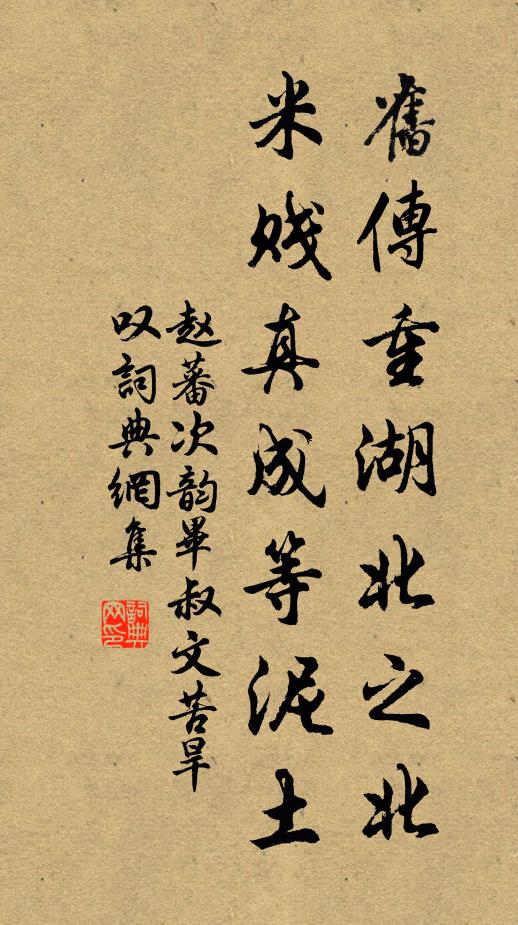 舊傳重湖北之北
米賤真成等泥土
赵蕃次韵畢叔文苦旱
叹詞典網集
詞典網印